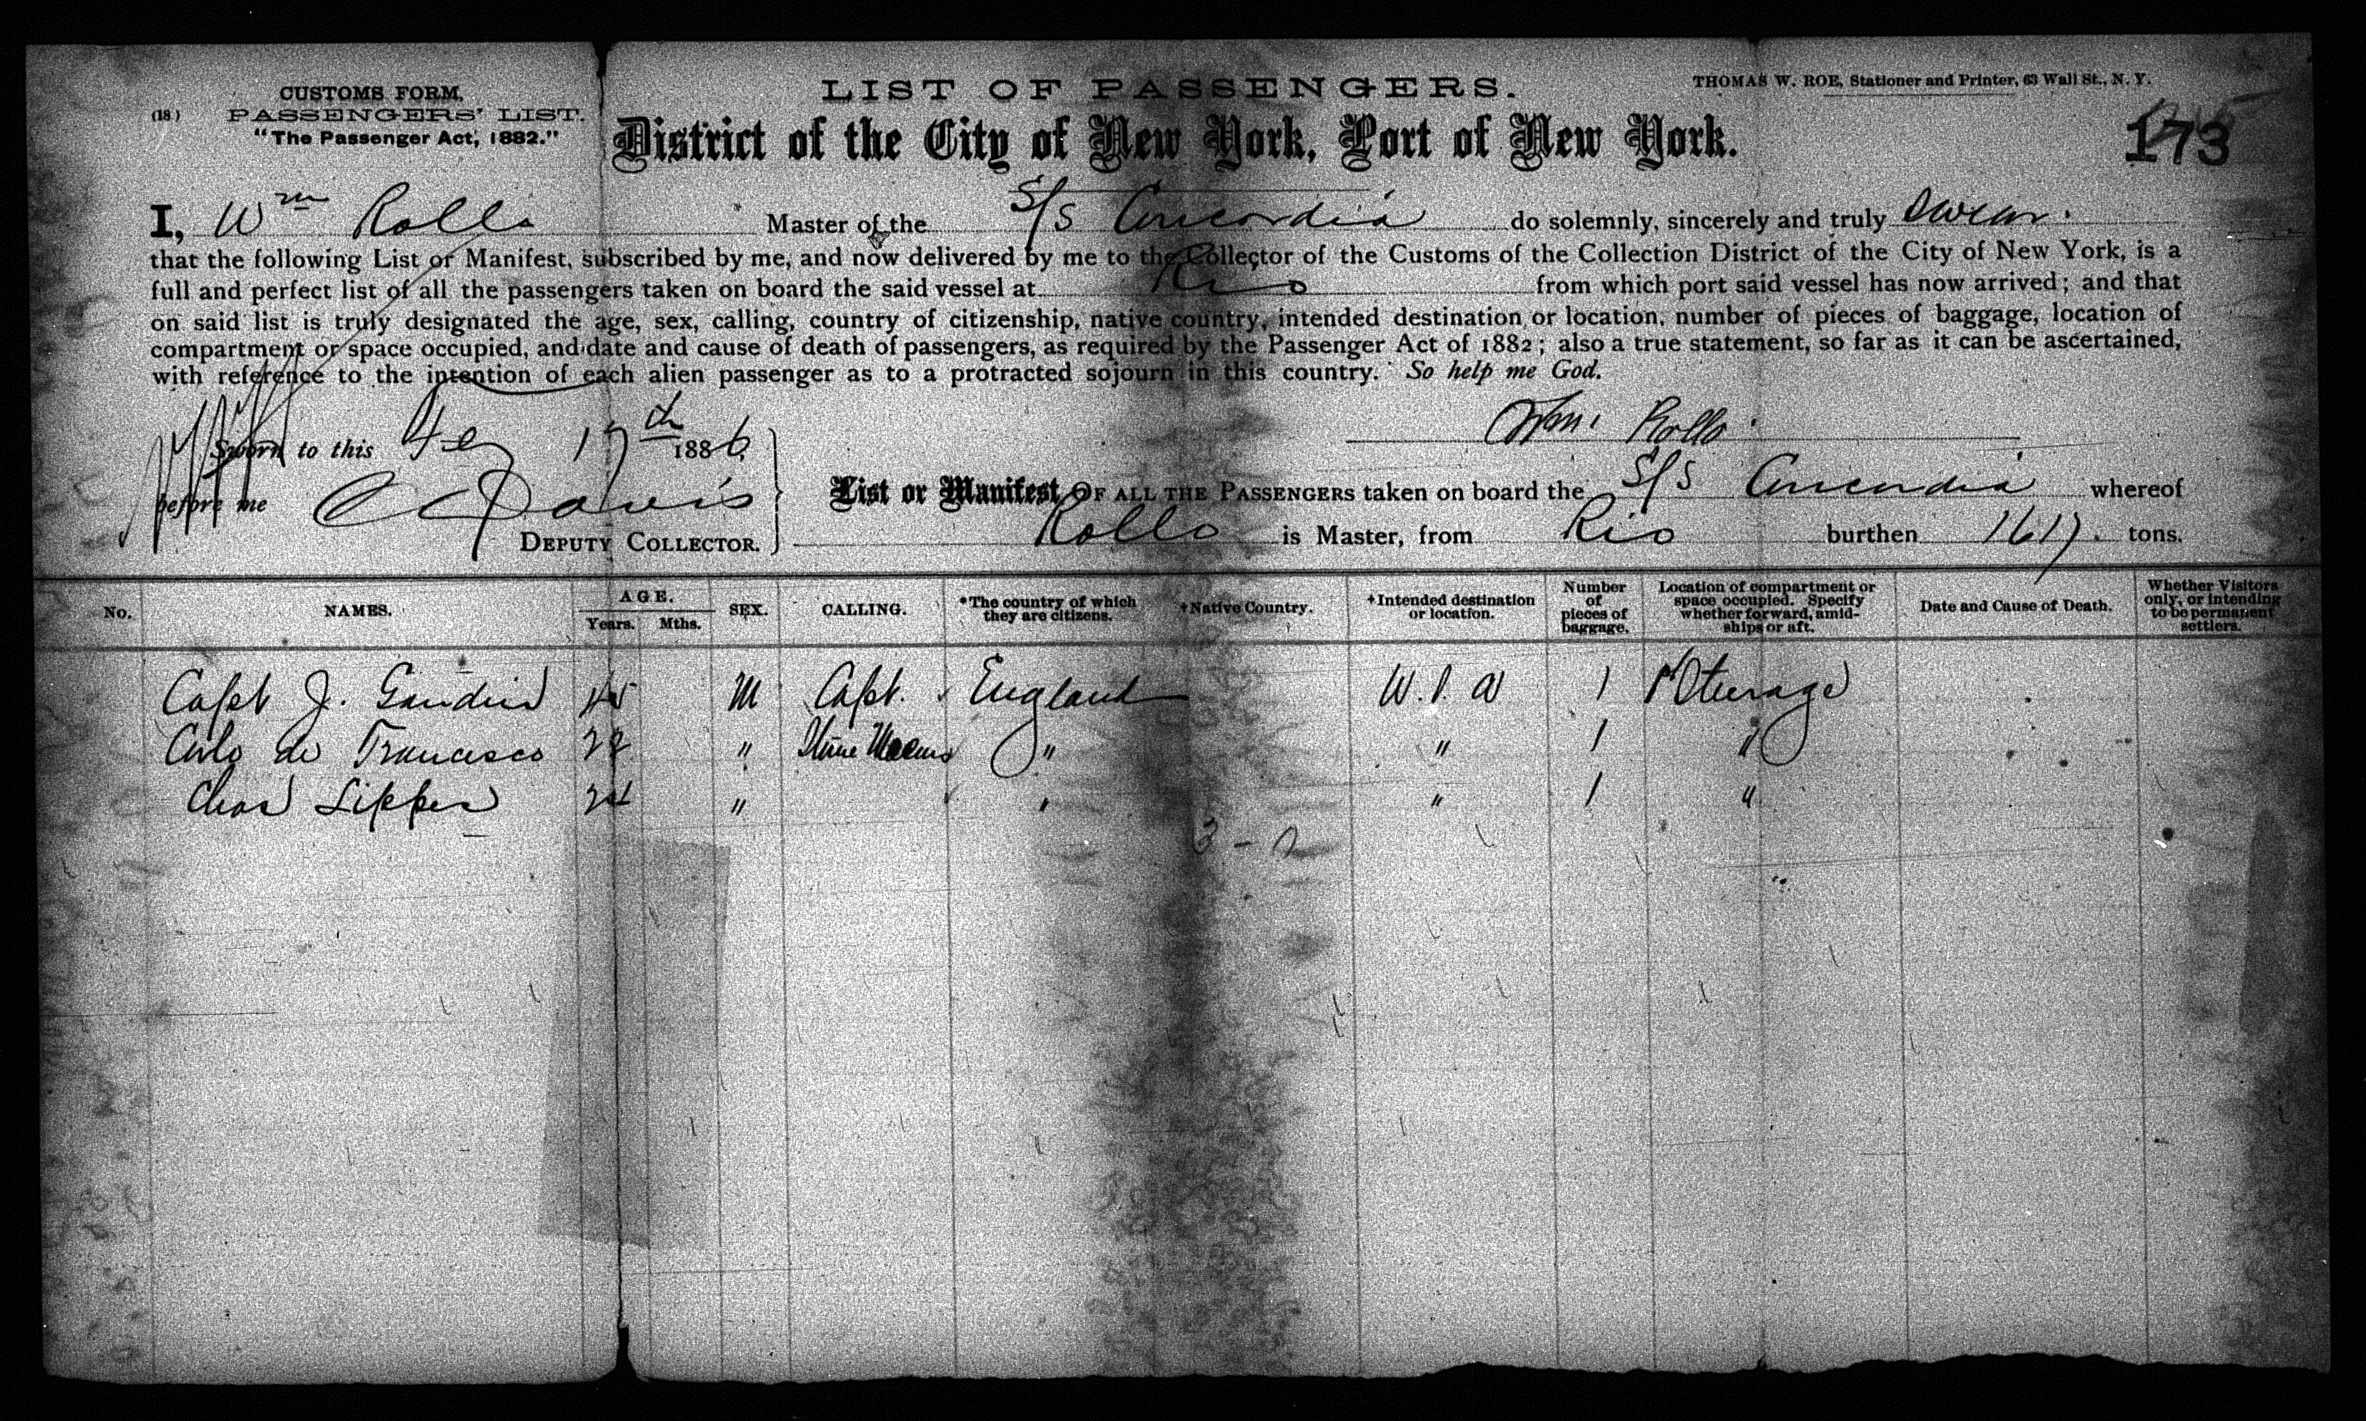 CUSTOMS FORM,
(18) PASSENGERS' LIST.
"The Passenger Act, 1882."
LIST OF PASSENGERS.
THOMAS W. ROE, Stationer and Printer, 63 Wall St., N. Y.
District of the City of New York, Port of New York.
173
I, Wm Rollo Master of the S/s Concordia do solemnly, sincerely and truly swear.
that the following List or Manifest, subscribed by me, and now delivered by me to the Collector of the Customs of the Collection District of the City of New York, is a
full and perfect list of all the passengers taken on board the said vessel at Rio from which port said vessel has now arrived; and that
on said list is truly designated the age, sex, calling, country of citizenship, native country, intended destination or location, number of pieces of baggage, location of
compartment or space occupied, and date and cause of death of passengers, as required by the Passenger Act of 1882; also a true statement, so far as it can be ascertained,
with reference to the intention of each alien passenger as to a protracted sojourn in this country. So help me God.
Wm. Rollo
Sworn to this 17th 1886
before me C C Davis
DEPUTY COLLECTOR.
List or Manifest OF ALL THE PASSENGERS taken on board the S/s Concordia whereof
Rollo is Master, from Rio burthen 1617 tons.
No. NAMES. AGE. Years. Mths. SEX. CALLING. *The country of which they are citizens. †Native Country. †Intended destination or location. Number of pieces of baggage. Location of compartment or space occupied. Specify whether forward, amidships or aft. Date and Cause of Death. Whether Visitors only, or intending to be permanent settlers.
Capt J. Gaudin 45 M Capt. England 1 Steerage
Carlo de Francisco " " " 1 "
Chas Lipper 24 " " " 1 "